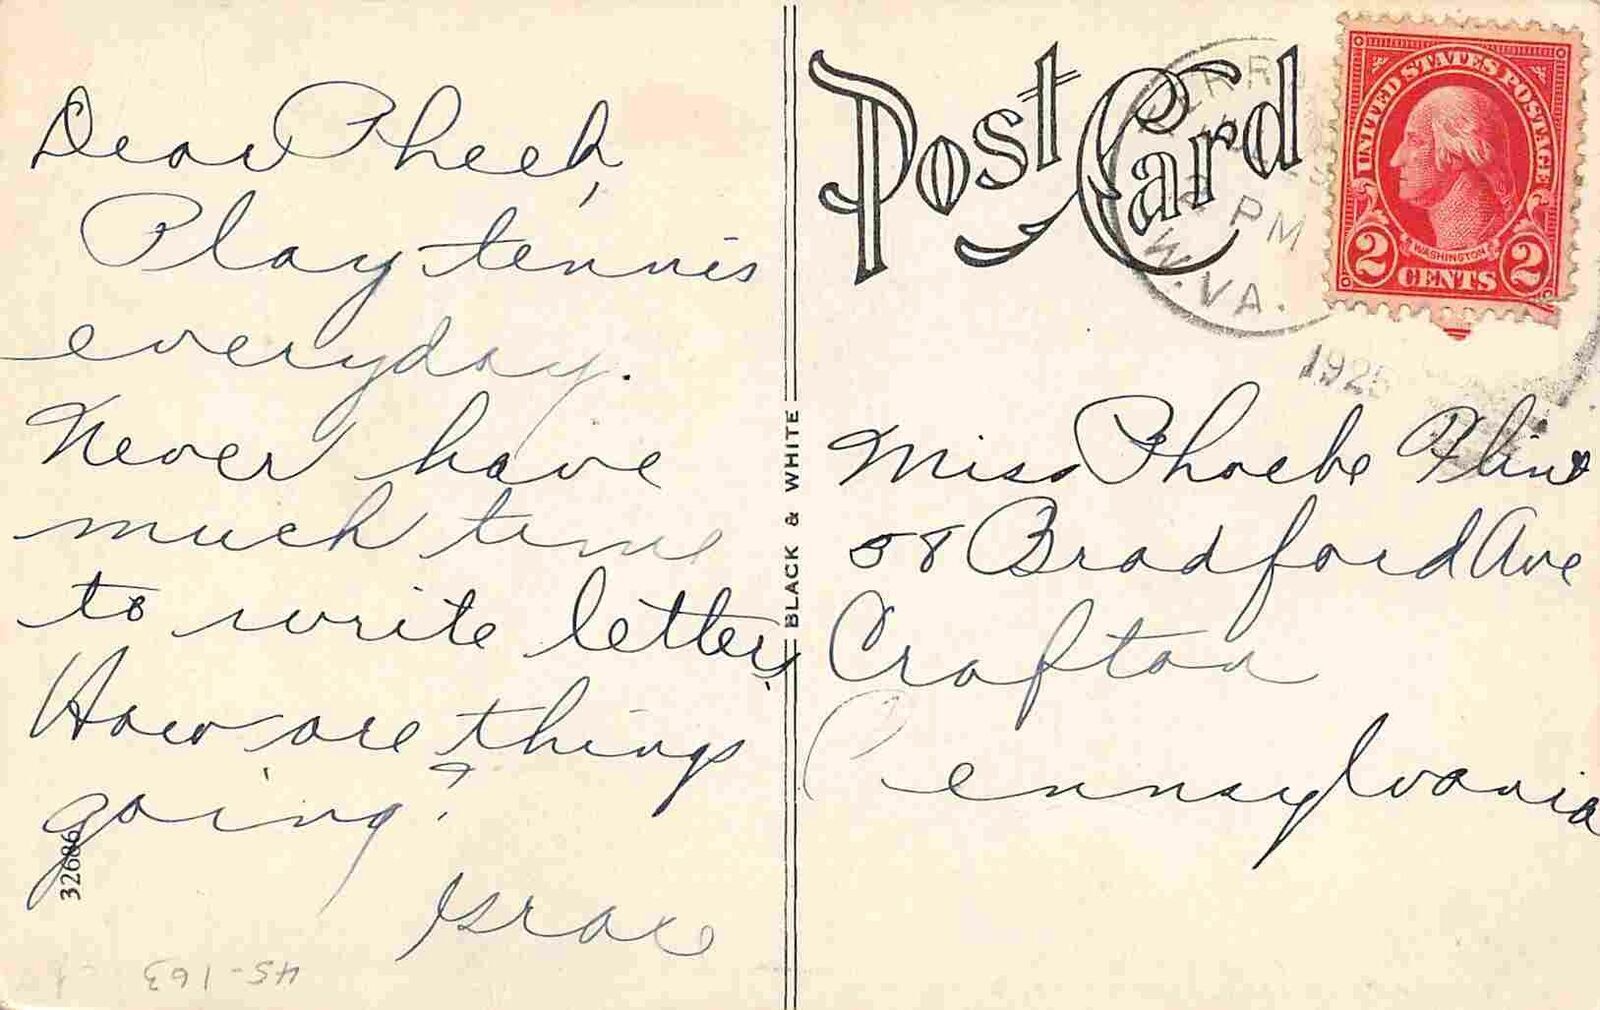 Dear Pheeb,
Play tennis
everyday.
Never have
much time
to write letters,
How are things
going?
Grace
32686
45-163
BLACK & WHITE
Post Card
PM
W.VA.
1925
UNITED STATES POSTAGE
WASHINGTON
2 CENTS 2
Miss Phoebe Flint
58 Bradford Ave
Crafton
Pennsylvania